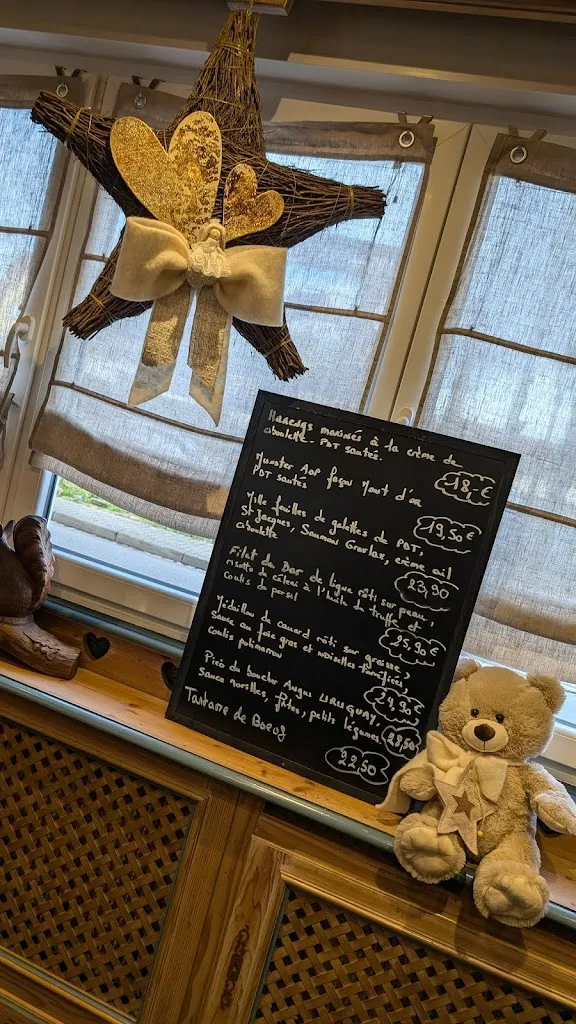 Harengs marinés à la crème de
ciboulette - PDT sautés.
18,- €
Munster AOP façon Mont d'or
PDT sautés
19,50 €
Mille feuilles de galettes de PDT,
St Jacques, Saumon Gravlax, crème ail
ciboulette
23,90
Filet de Bar de ligne rôti sur peau
risotto de céleri à l'huile de truffe et
coulis de persil
25,90 €
Médaillon de canard rôti sur graisse,
sauce au foie gras et noisettes torréfiées,
coulis potimarron
24,90 €
Pièce du boucher Angus URUGUAY,
Sauce morilles, frites, petits légumes
28,50
Tartare de Boeuf
22,50